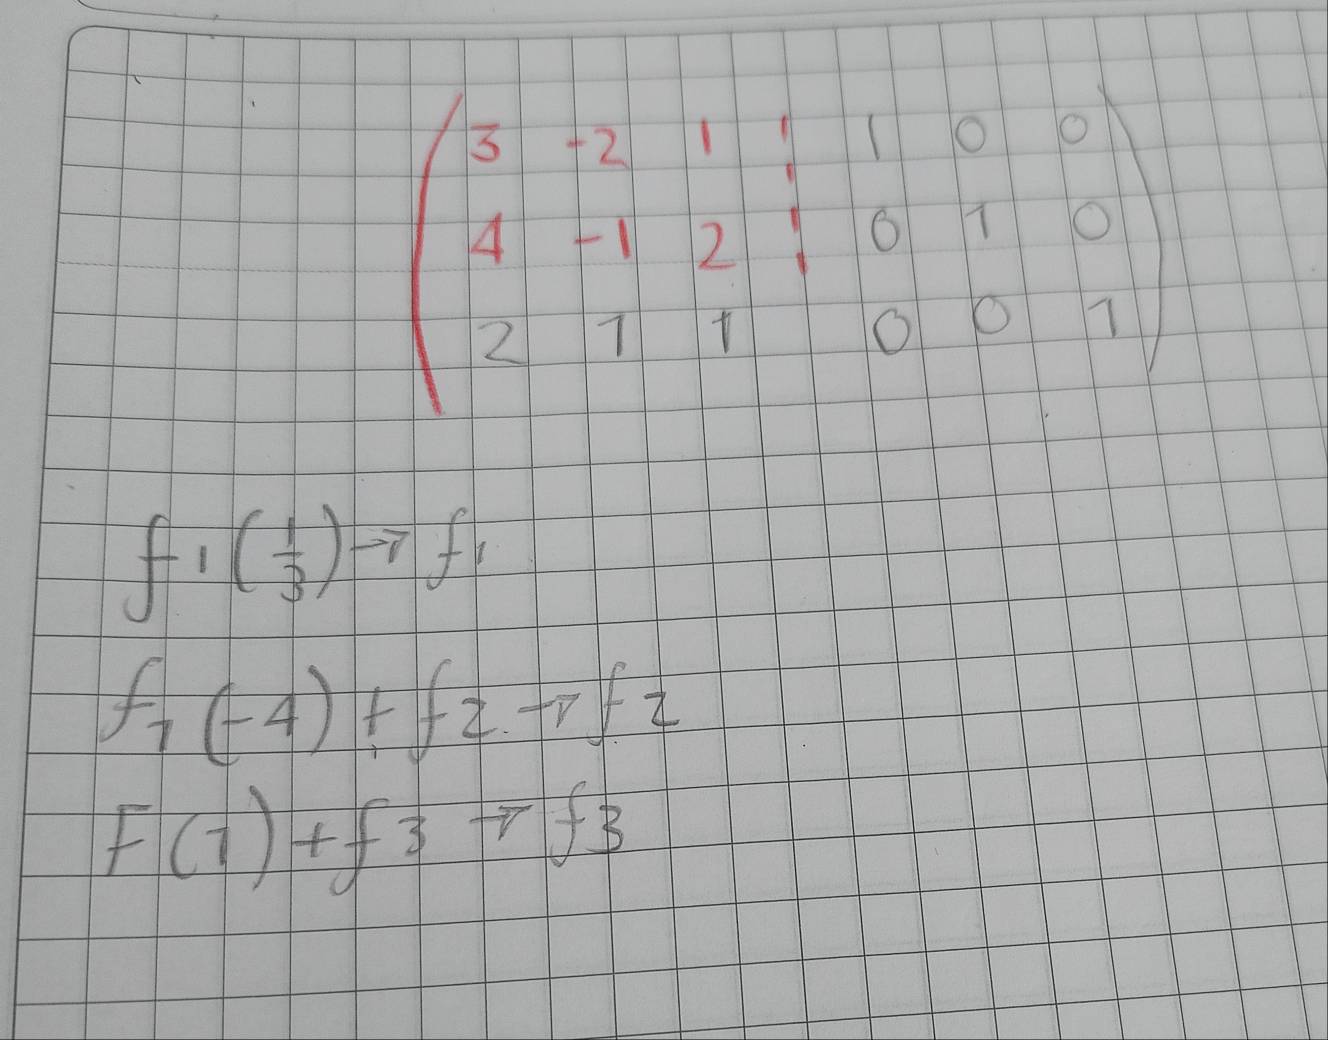 3 -2 1 ¦ 1 0 0
4 -1 2 ¦ 0 1 0
2 1 1 0 0 1
f1(1/3)→f1
f1(-4)+f2→f2
F(1)+f3→f3